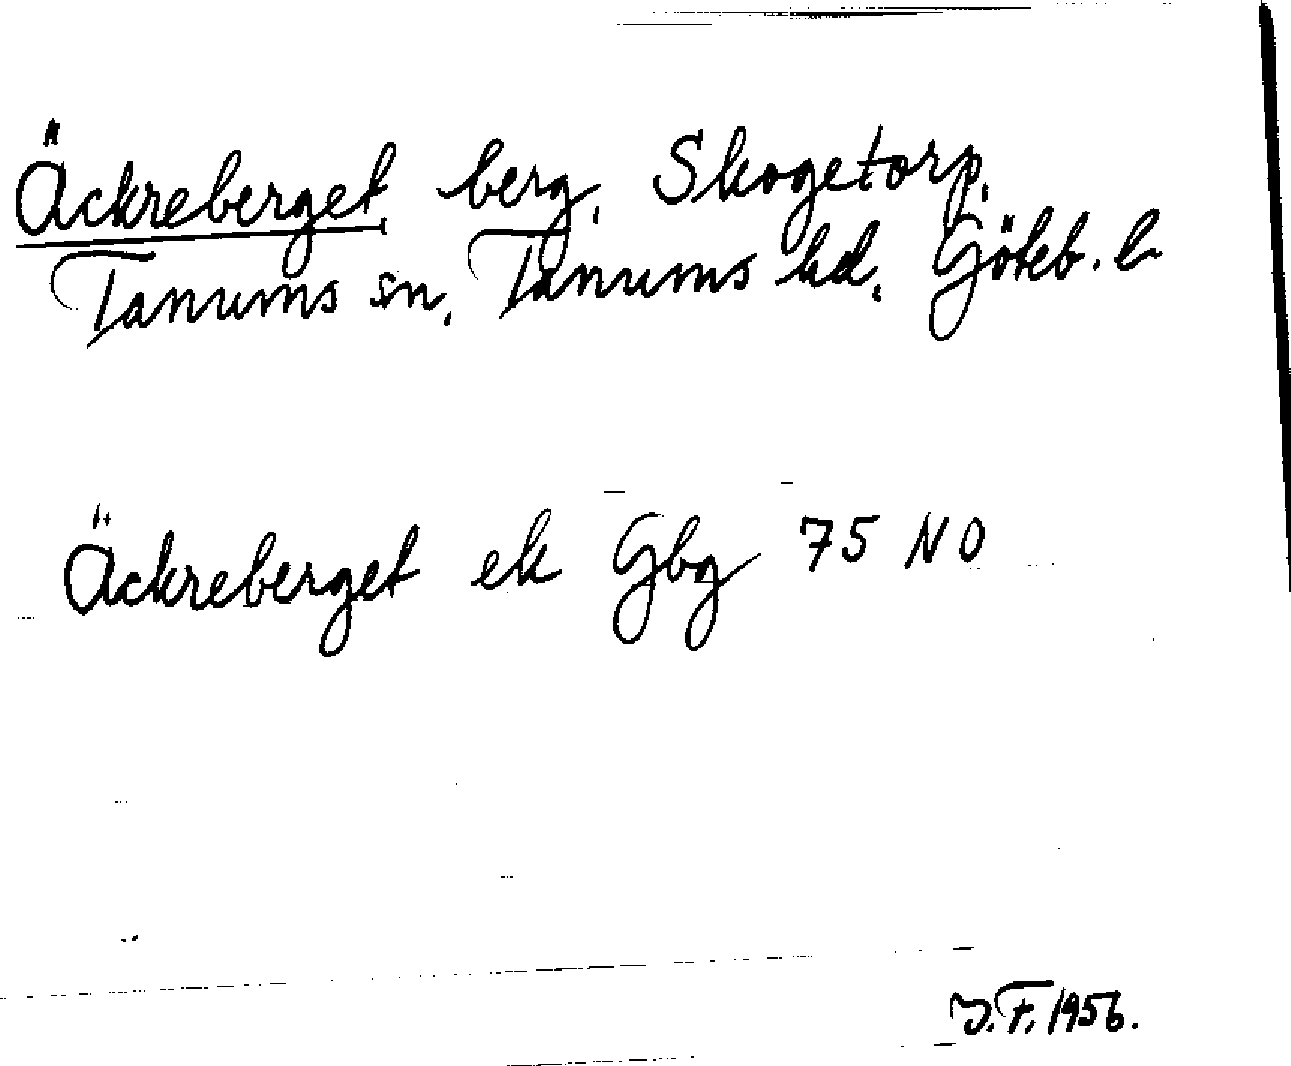 Äckreberget, berg, Skogetorp,
Tanums sn, Tanums hd, Göteb. l.
Äckreberget ek Gbg 75 NO
J.F. 1956.